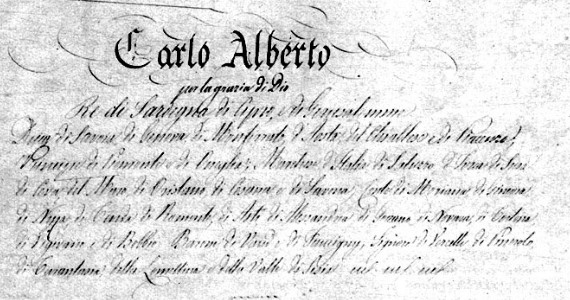 Carlo Alberto
per la grazia di Dio
Re di Sardegna di Cipro e di Gerusalemme
Duca di Savoia di Genova di Monferrato d'Aosta del Chiablese e di Piacenza,
Principe di Piemonte e di Oneglia, Marchese d'Italia di Saluzzo di Ivrea di Susa
di Ceva del Maro di Oristano di Cesana e di Savona Conte di Moriana di Ginevra
di Nizza di Tenda di Romonte di Asti di Alessandria di Novara di Tortona
di Vigevano e di Bobbio Barone di Vaud e di Faucigny, Signore di Vercelli di Pinerolo,
di Tarantasia della Lomellina e della Valle di Sesia